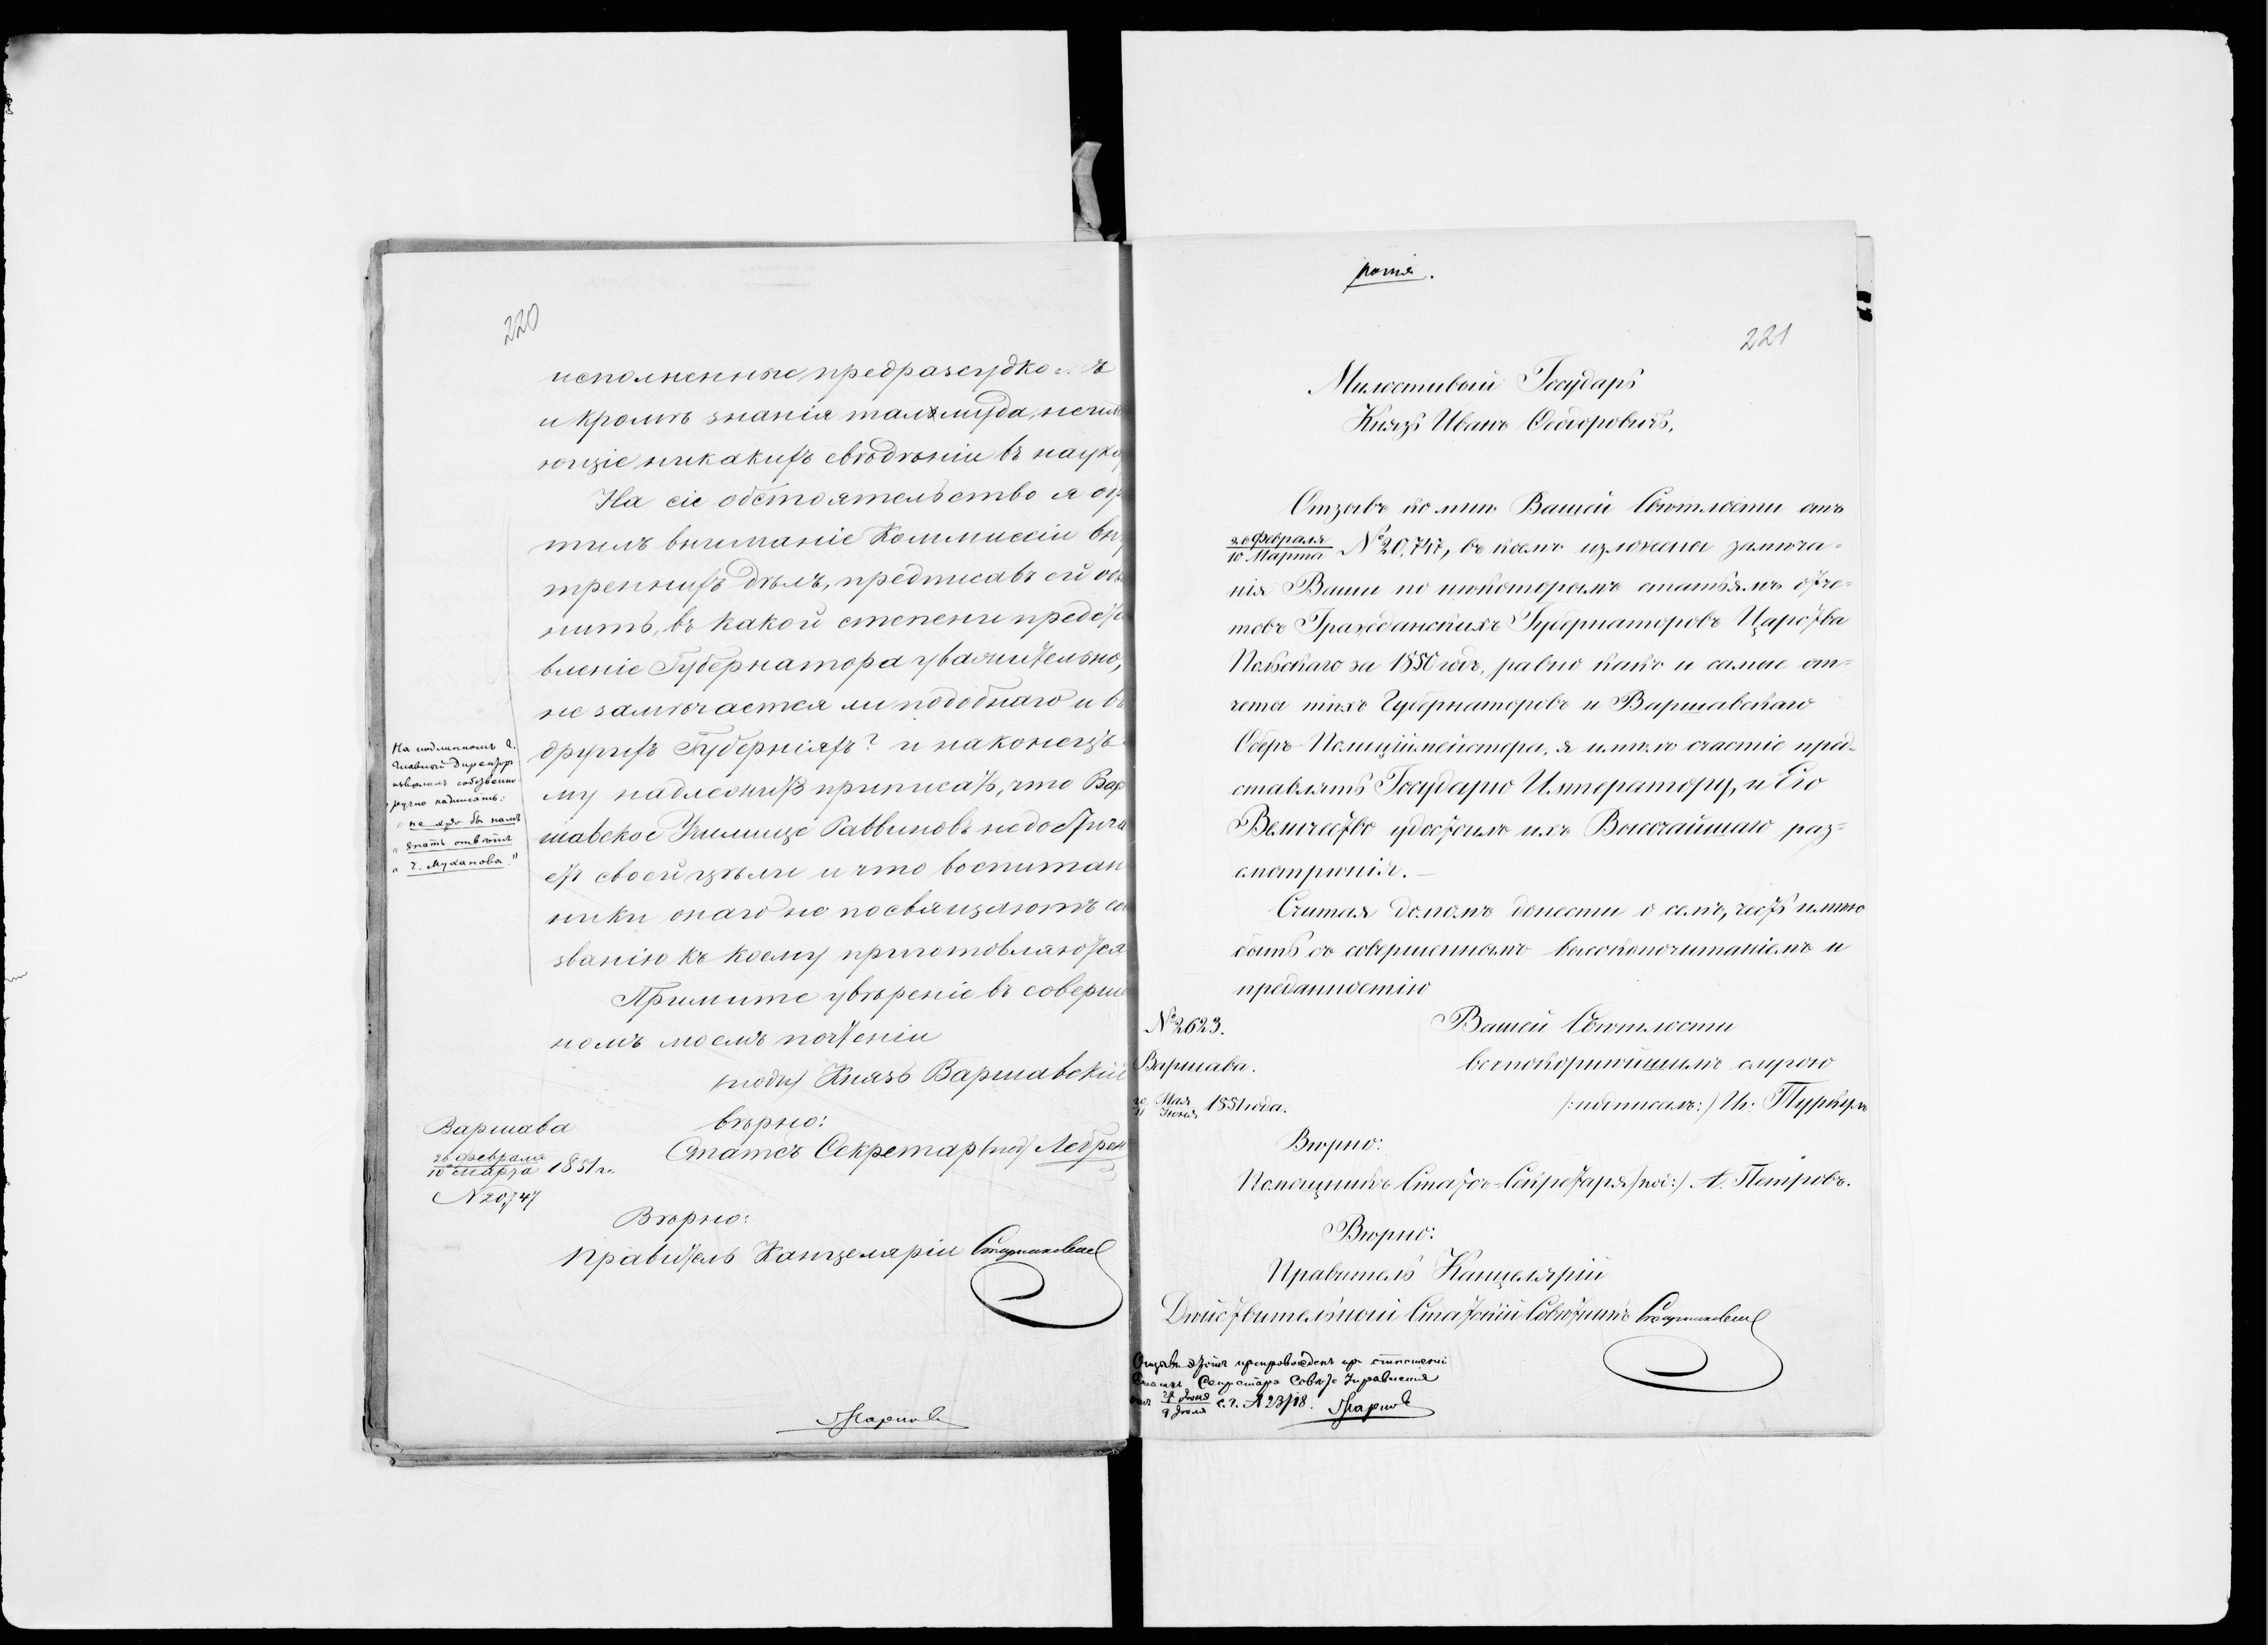 220
исполненные предразсудковъ
и кромѣ знанія талмуда, неимѣ
ющіе никакихъ свѣдѣніи въ наука
На сіе обстоятельство я обра
тилъ вниманіе Коммиссіи вну
треннихъ дѣлъ, предписавъ ей объя
нить, въ какой степени предста
вленіе Губернатора уважительно,
не замѣчается ли подобнаго и въ
другихъ Губерніяхъ? и наконецъ
му надлежитъ приписать, что Вар
шавское Училище Раввиновъ недостига
етъ своей цѣли и что воспитан
ники онаго не посвящаютъ се
званію къ коему приготовляются
Примите увѣреніе въ соверше
номъ моемъ почтеніи
(подп) Князь Варшавскій
вѣрно:
Статсъ Секретар (под) Лебрен
На подлинномъ Г.
Главный Директоръ
изволилъ собственно
ручно написать:
"не худо бы намъ
"знать отвѣтъ
"г. Муханова."
Варшава
26 Февраля
10 Марта 1851 г.
N 20,747
Вѣрно:
Правитель Канцеляріи
Карповъ
копія.
221
Милостивый Государь
Князь Иванъ Ѳедоровичъ,
Отзывъ ко мнѣ Вашей Свѣтлости отъ
26 Февраля
10 Марта № 20,747, въ коемъ изложены замѣча-
нія Ваши по нѣкоторымъ статьямъ отче-
товъ Гражданскихъ Губернаторовъ Царства
Польскаго за 1850 годъ, равно какъ и самые от-
четы тѣхъ Губернаторовъ и Варшавскаго
Оберъ-Полиціймейстера, я имѣлъ счастіе пред-
ставлять Государю Императору, и Его
Величество удостоилъ ихъ Высочайшаго раз-
смотрѣнія. —
Считая долгомъ донести о семъ, честь имѣю
быть съ совершеннымъ высокопочитаніемъ и
преданностію
№ 2623.
Вашей Свѣтлости
Варшава.
всепокорнѣйшимъ слугою
20 Мая
11 Іюня 1851 года.
/:подписалъ:/ Иг: Туркулъ
Вѣрно:
Помощникъ Статсъ-Секретаря /под:/ А. Петровъ.
Вѣрно:
Правитель Канцеляріи
Дѣйствительный Статскій Совѣтникъ
Отзывъ этотъ препровожденъ при отношеніи
Статсъ Секретаря Совѣта Управленія
отъ 27 Іюня
9 Іюля с. г. N 23718. Карповъ